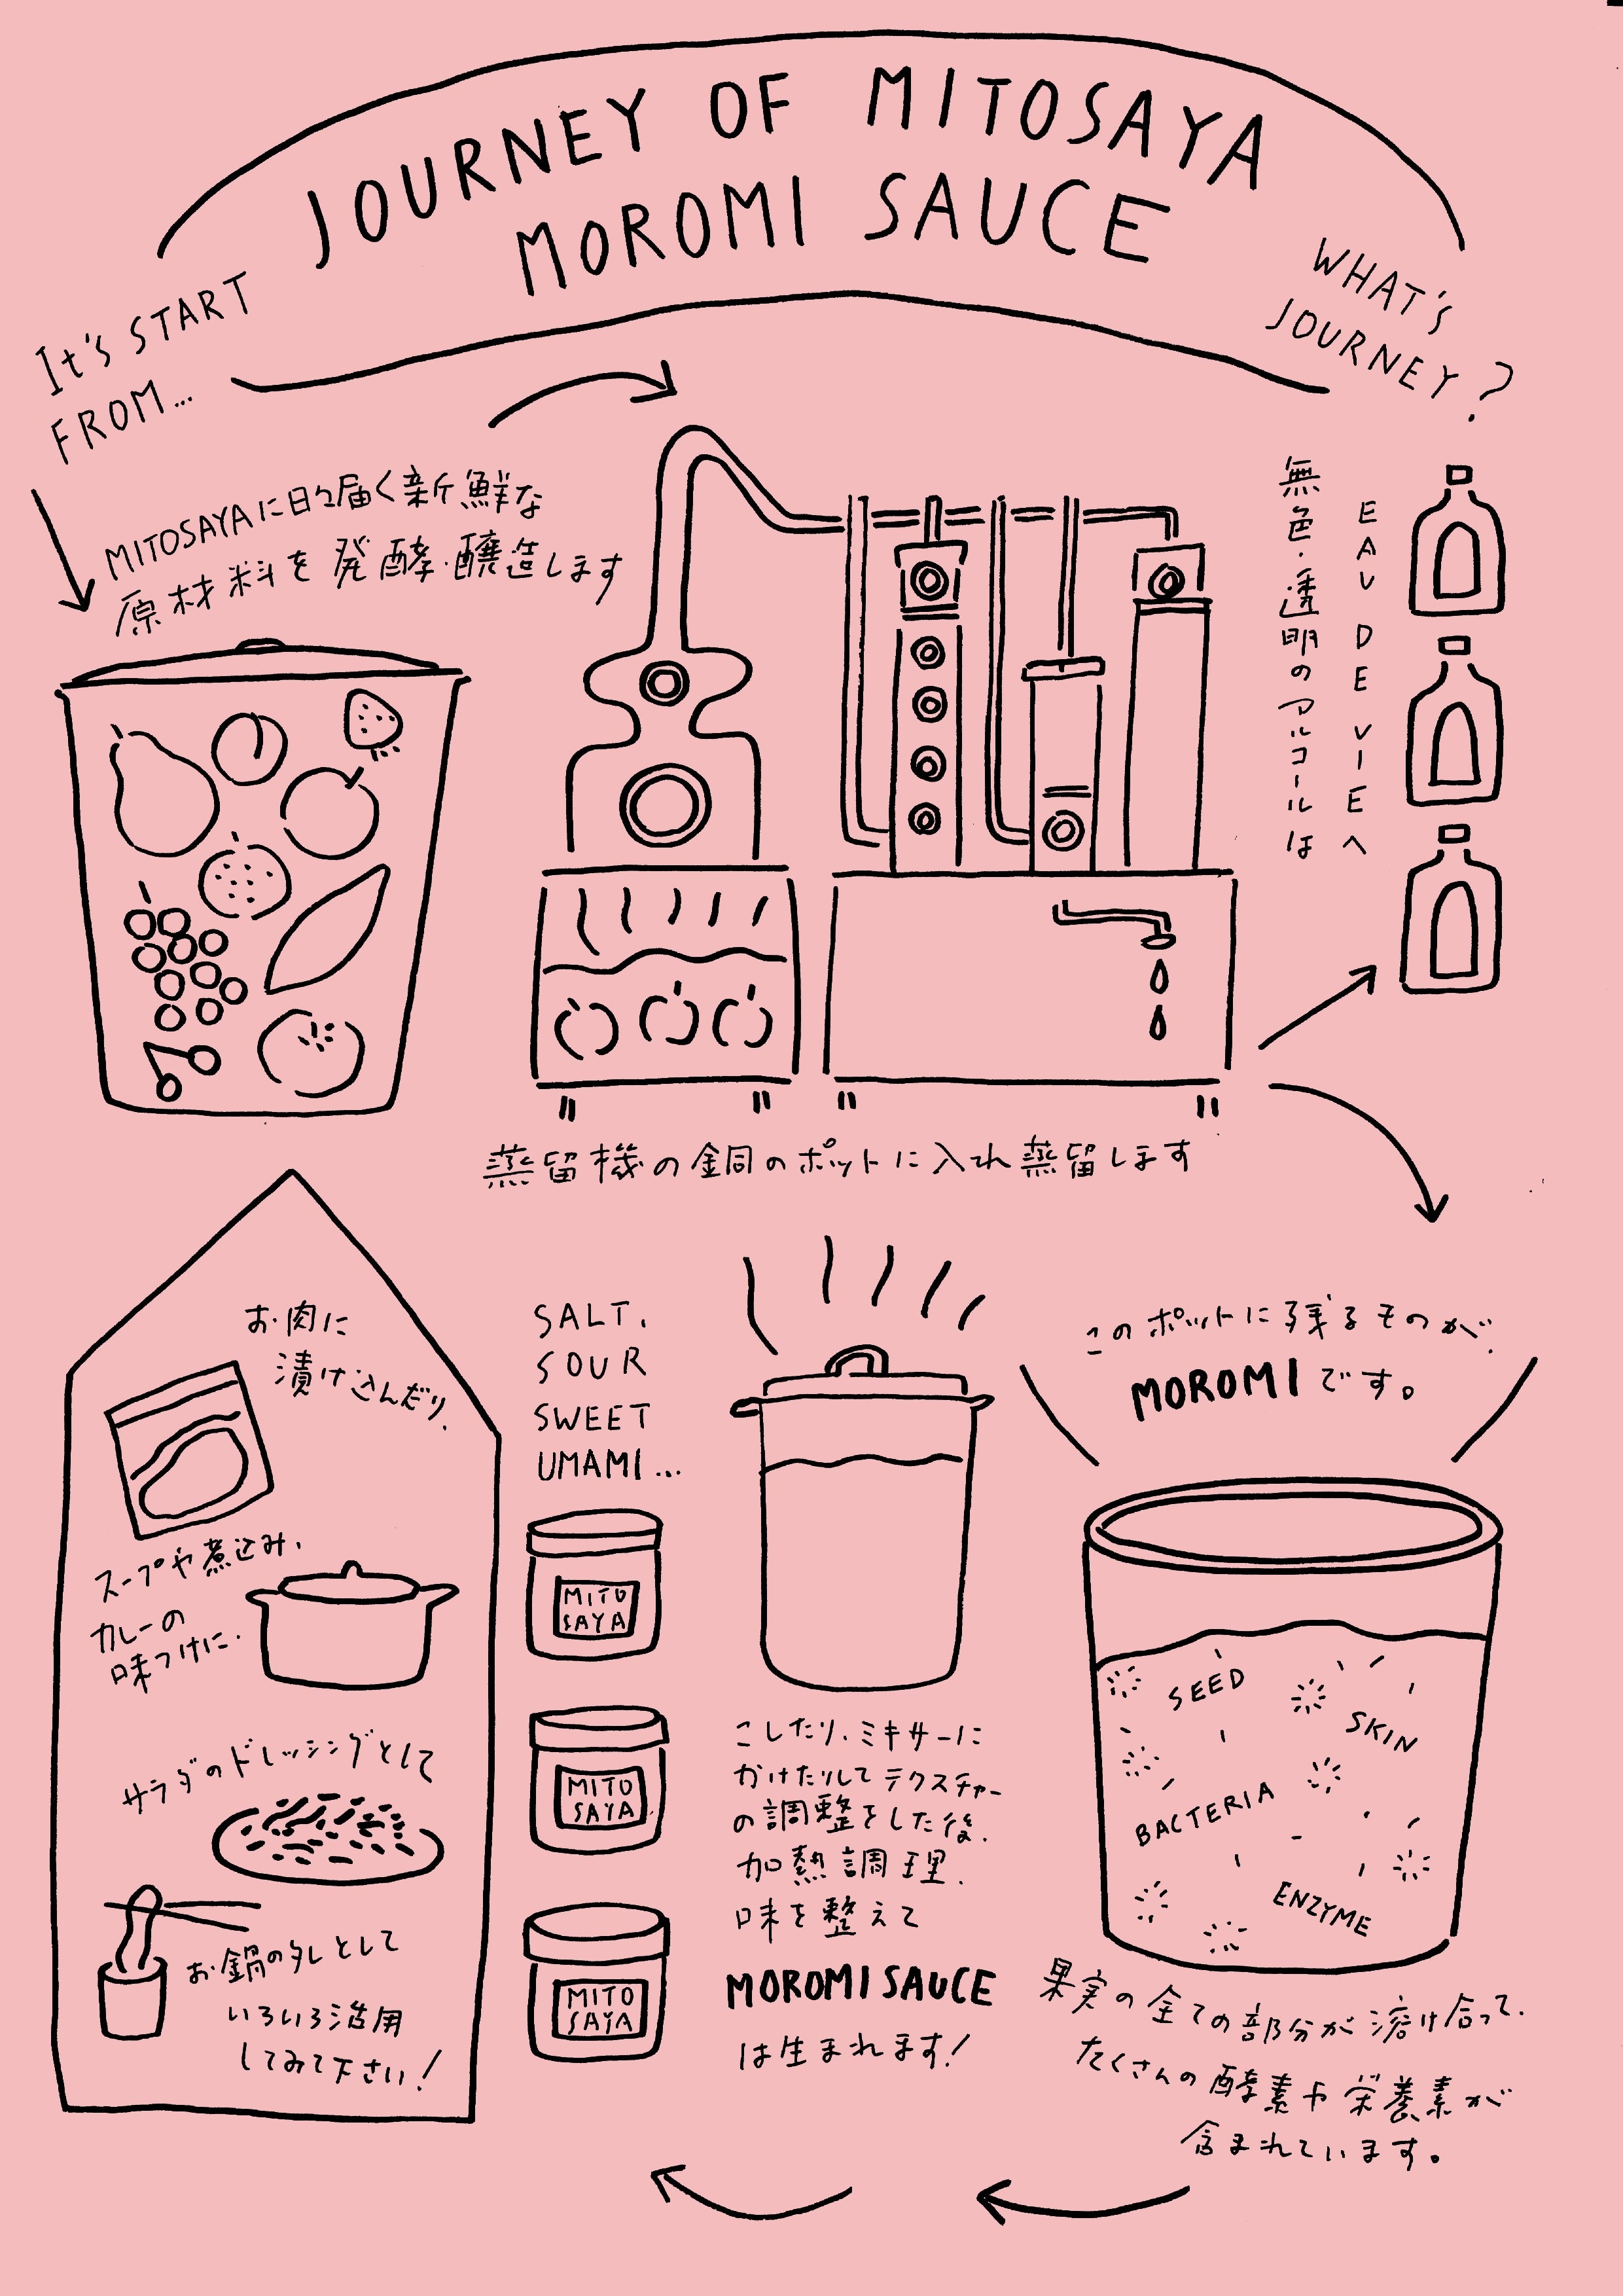 JOURNEY OF MITOSAYA
MOROMI SAUCE
It's START
FROM...
WHAT'S
JOURNEY?
MITOSAYAに日々届く新鮮な
原材料を発酵・醸造します
無色・透明のアルコールは
EAU DE VIEへ
蒸留機の銅のポットに入れ蒸留します
このポットに残るものが、
MOROMIです。
SEED
SKIN
BACTERIA
ENZYME
果実の全ての部分が溶け合って、
たくさんの酵素や栄養素が
含まれています。
こしたり、ミキサーに
かけたりしてテクスチャー
の調整をした後、
加熱調理、
味を整えて
MOROMI SAUCE
は生まれます!
SALT,
SOUR
SWEET
UMAMI...
MITO
SAYA
MITO
SAYA
MITO
SAYA
お肉に
漬けこんだり、
スープや煮込み、
カレーの
味つけに、
サラダのドレッシングとして
お鍋のタレとして
いろいろ活用
してみて下さい!